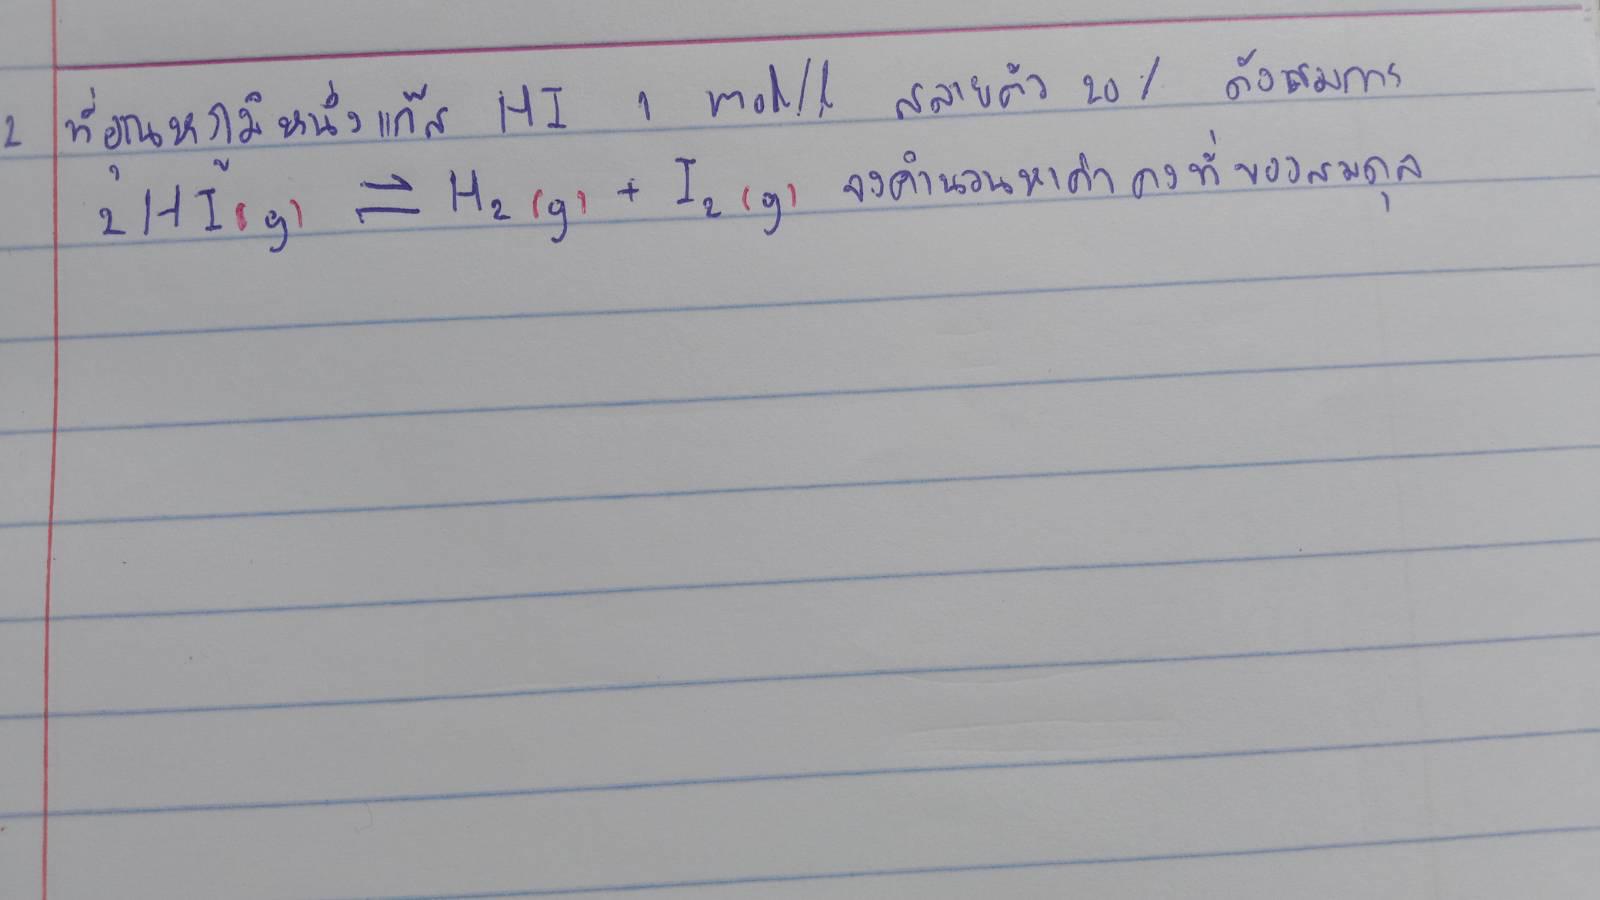 2 ที่อุณหภูมิหนึ่งแก๊ส HI 1 mol/l สลายตัว 20% ดังสมการ
2HI(g) ⇌ H₂(g) + I₂(g) จงคำนวนหาค่าคงที่ของสมดุล